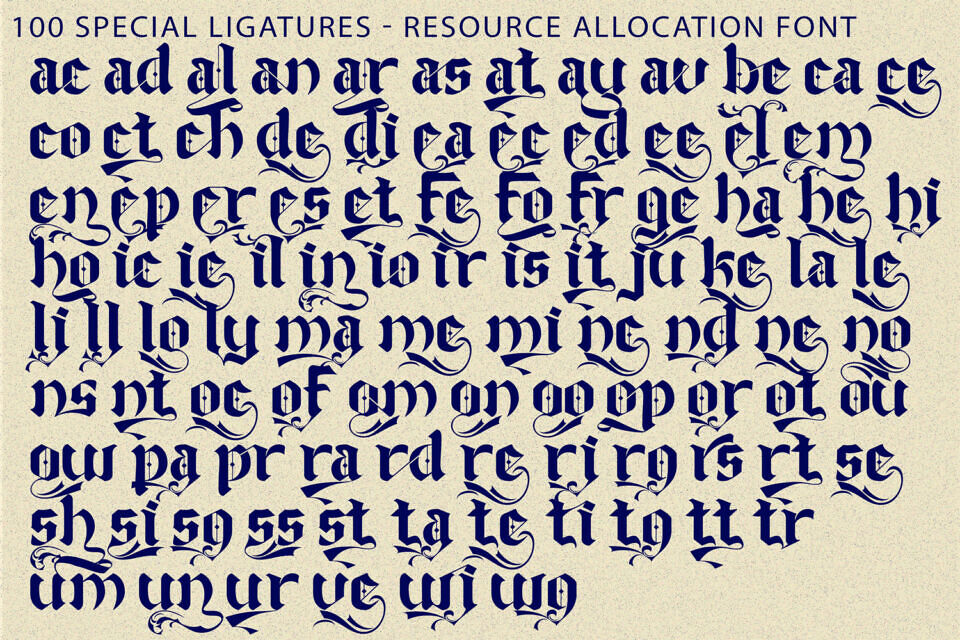 100 SPECIAL LIGATURES - RESOURCE ALLOCATION FONT
ac ad al an ar as at ay av be ca ce
co ct ch de di ea ec ed ee el em
en ep er es et fe fo fr ge ha he hi
ho ic ie il in io ir is it ju ke la le
li ll lo ly ma me mi nc nd ne no
ns nt oc of om on oo op or ot ou
ow pa pr ra rd re ri ro rs rt se
sh si so ss st ta te ti to tt tr
um un ur ve wi wo